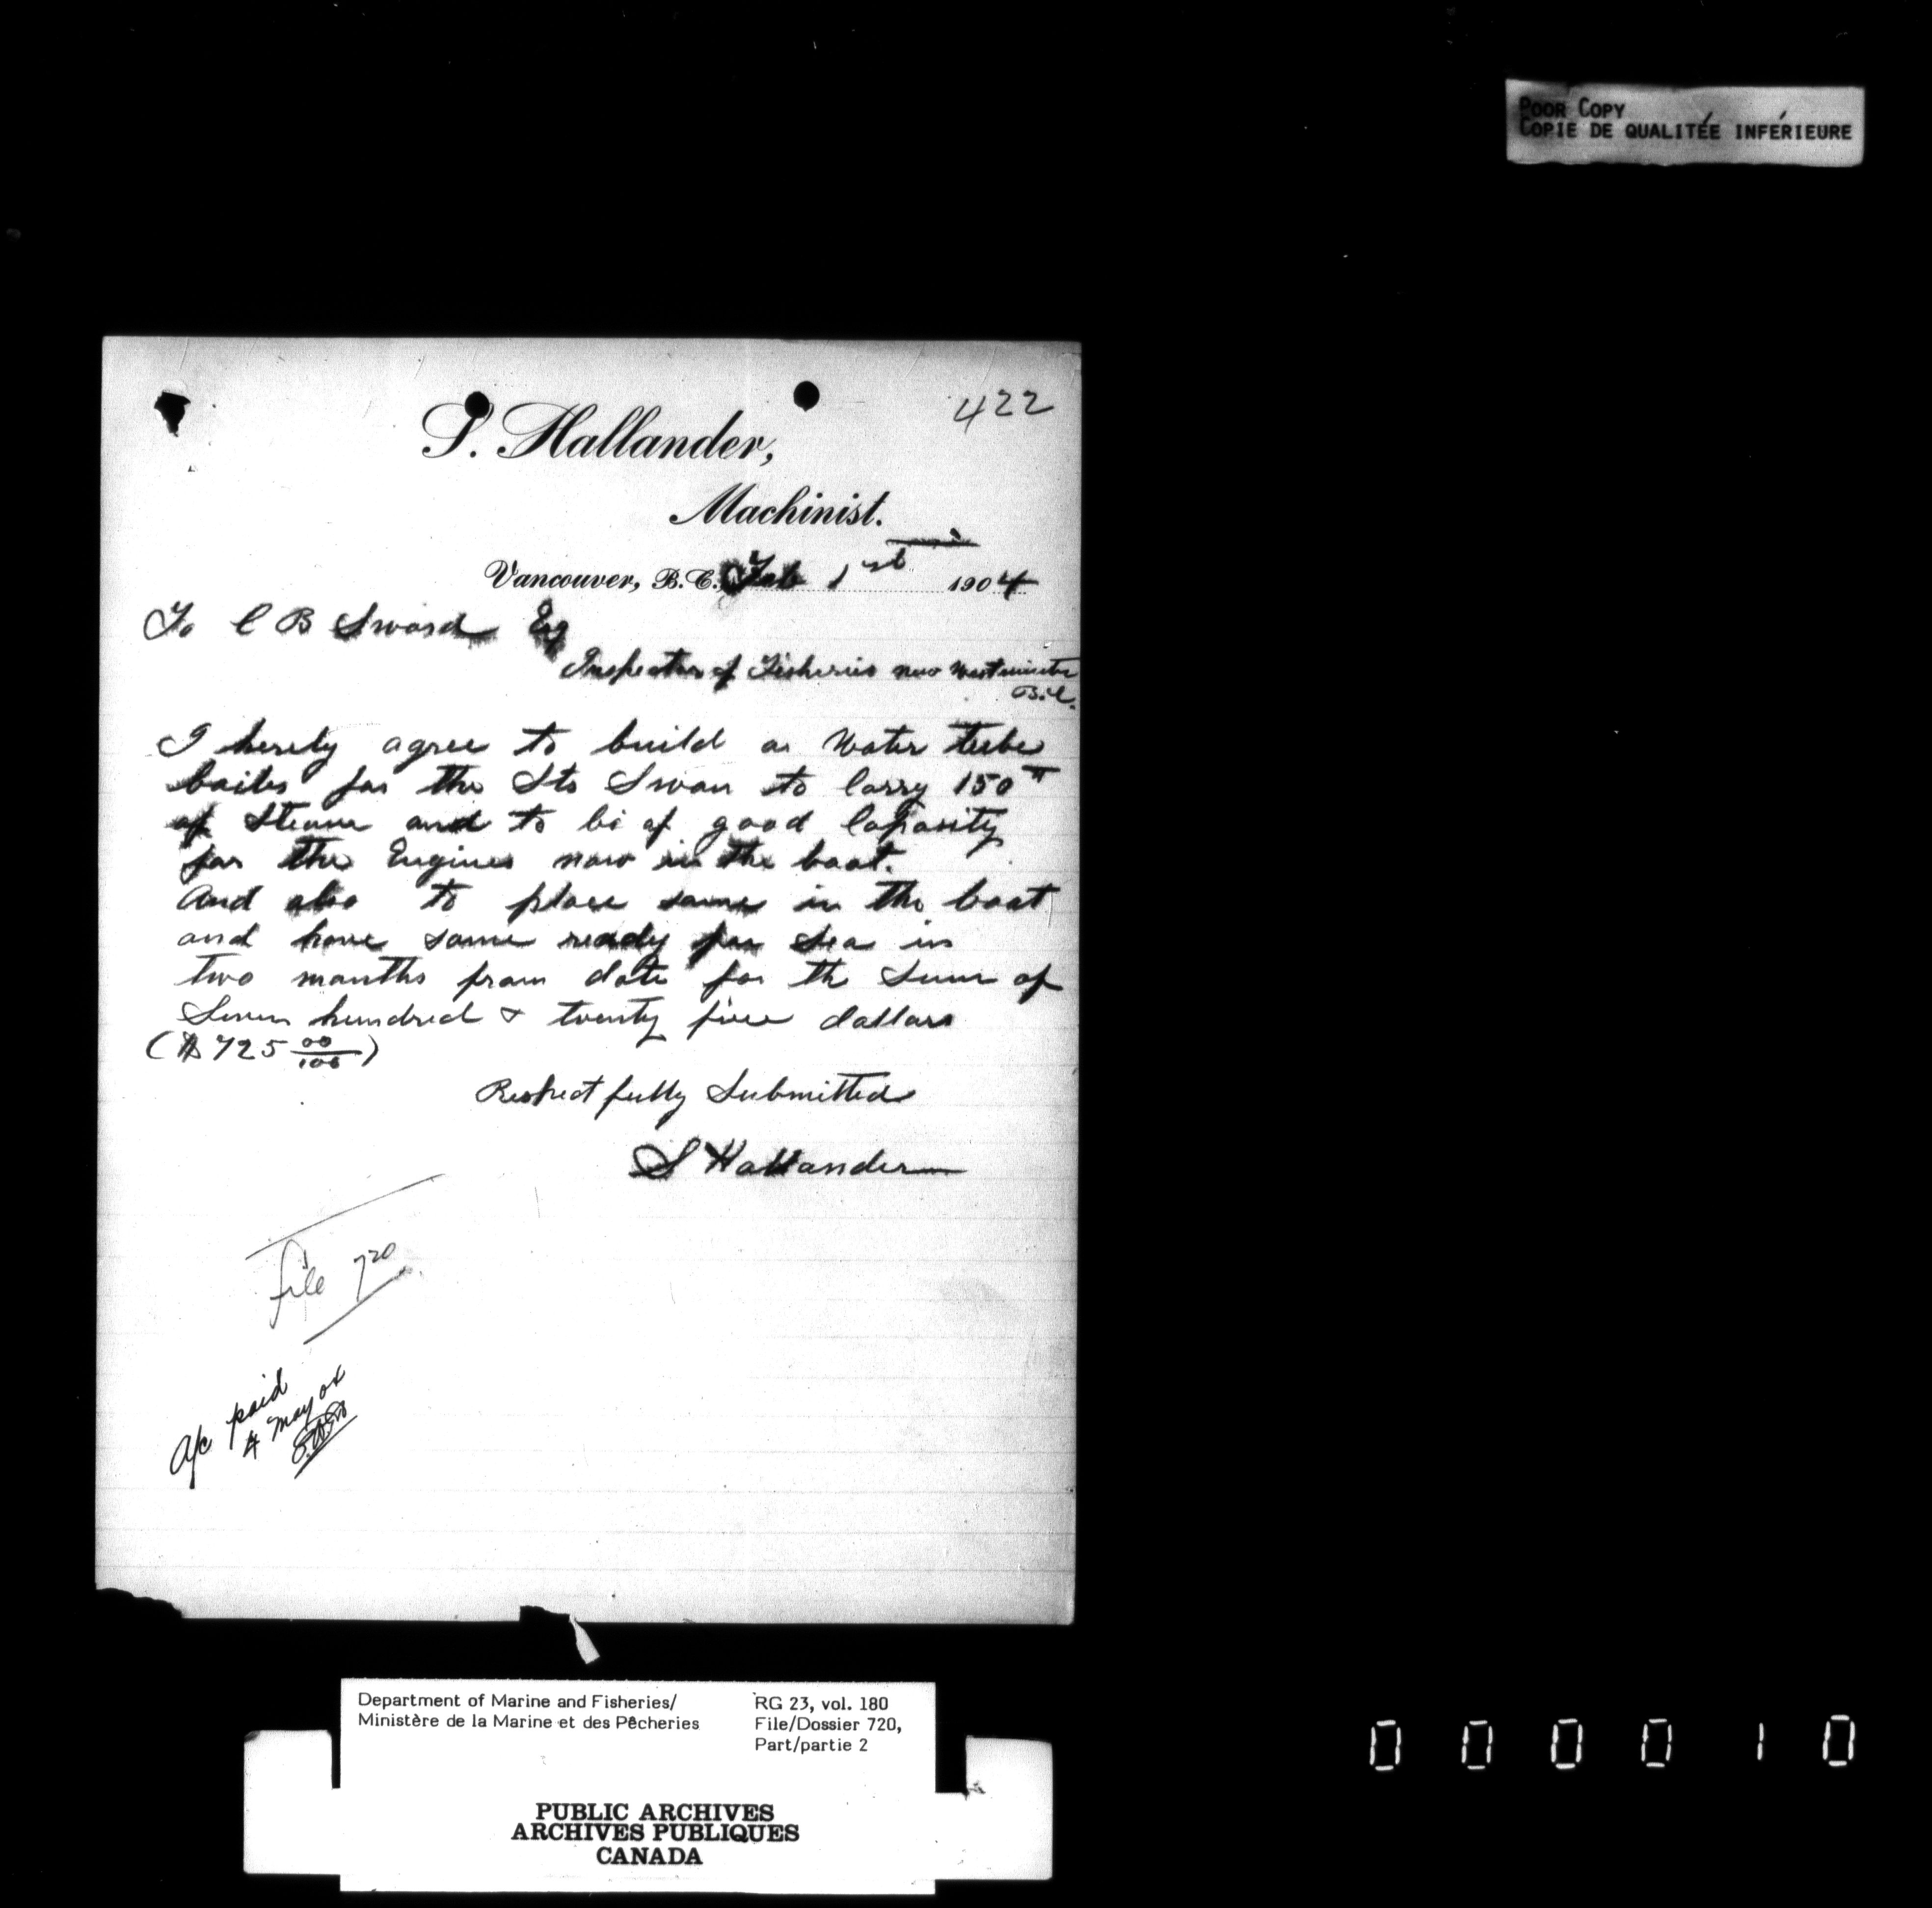 POOR COPY
COPIE DE QUALITÉE INFÉRIEURE
422
S. Hallander,
Machinist.
Vancouver, B.C. Feb 1st 1904
To C B Sword Esq
Inspector of Fisheries New Westminster
B.C.
I hereby agree to build a Water tube
boiler for the Str Swan to carry 150#
of Steam and to be of good Capasity
for the Engines now in the boat.
And also to place same in the boat
and have same ready for Sea in
two months from date for the Sum of
Seven hundred & twenty five dollars
($725 00/100)
Respectfully Submitted
S Hallander
File 720
A/c paid
4 May 04
Department of Marine and Fisheries/
Ministère de la Marine et des Pêcheries
RG 23, vol. 180
File/Dossier 720,
Part/partie 2
PUBLIC ARCHIVES
ARCHIVES PUBLIQUES
CANADA
000010